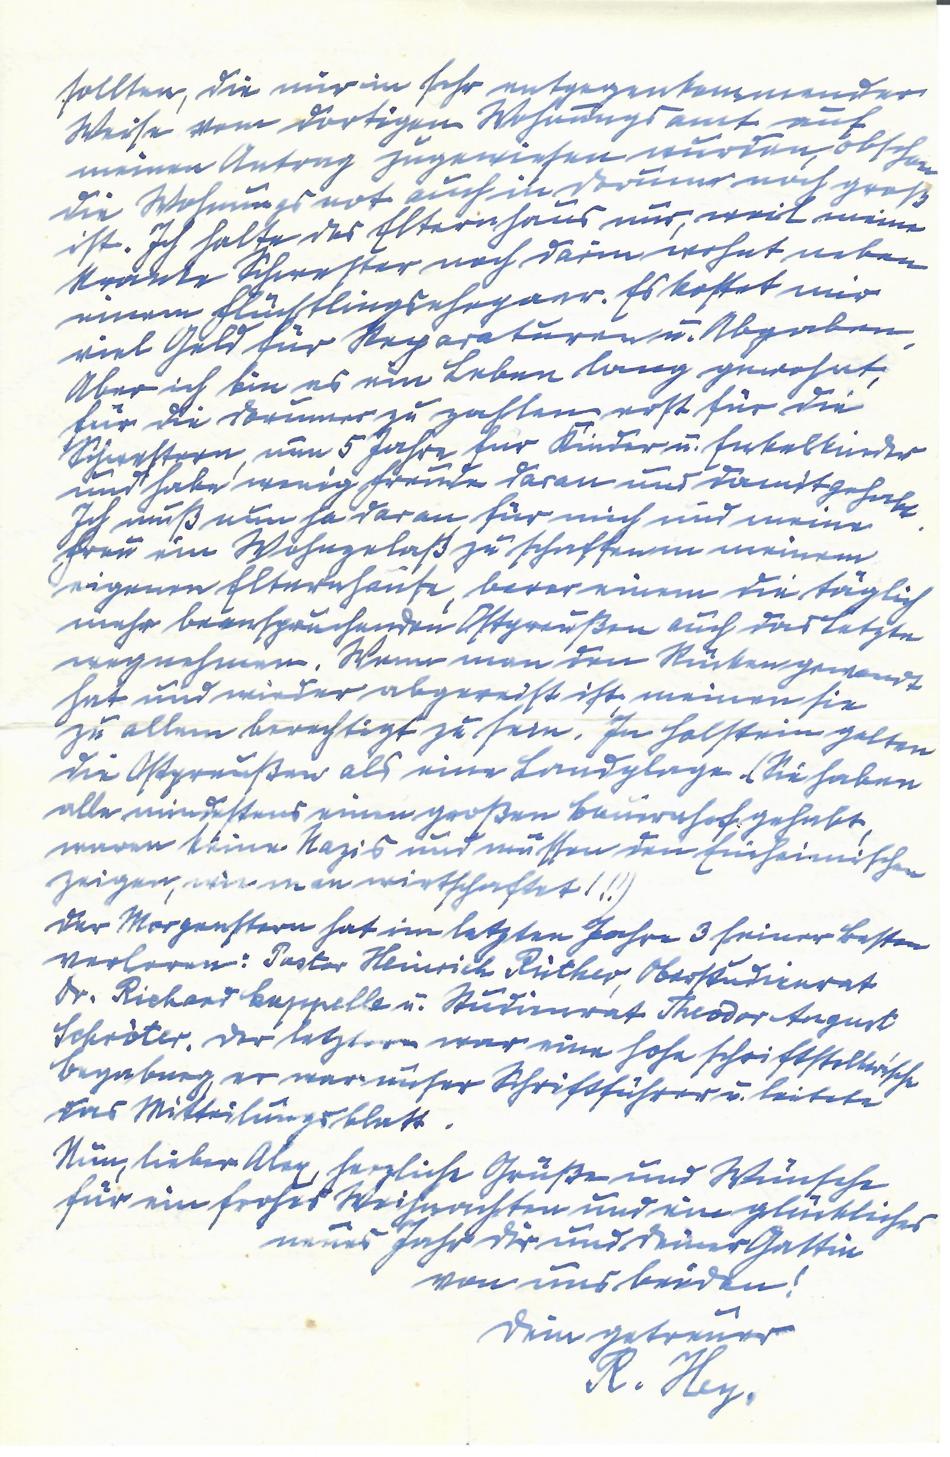 sollten, die mir in sehr entgegenkommender
Weise vom dortigen Wohnungsamt auf
meinen Antrag zugewiesen wurden, obschon
die Wohnungsnot auch in Dorum noch groß
ist. Ich halte das Elternhaus nur, weil meine
kranke Schwester noch darin wohnt neben
einem Flüchtlingsehepaar. Es kostet mir
viel Geld für Reparaturen u. Abgaben.
Aber ich bin es ein Leben lang gewohnt,
für die Dorumer zu zahlen erst für die
Schwestern, nun 5 Jahre für Kinder u. Enkelkinder
und habe wenig Freude daran und damit gehabt.
Ich muß nun ja daran für mich und meine
Frau ein Wohngelaß zu schaffen in meinem
eigenen Elternhause, bevor einem die täglich
mehr beanspruchenden Ostpreußen auch das letzte
wegnehmen. Wenn man den Rücken gewandt
hat und wieder abgereist ist, meinen sie
zu allem berechtigt zu sein. In Holstein gelten
die Ostpreußen als eine Landplage. (Sie haben
alle mindestens einen großen Bauernhof gehabt,
waren keine Nazis und müssen den Einheimischen
zeigen, wie man wirtschaftet!!!)
Der Morgenstern hat im letzten Jahre 3 seiner besten
verloren: Pastor Heinrich Rüther, Oberstudienrat
Dr. Richard Cappelle u. Studienrat Theodor August
Schröter. Der letztere war eine hohe schriftstellerische
Begabung, er war unser Schriftführer u. leitete
das Mitteilungsblatt.
Nun, lieber Alex, herzliche Grüße und Wünsche
für ein frohes Weihnachten und ein glückliches
neues Jahr dir und deiner Gattin
von uns beiden!
Dein getreuer
R. Hey.